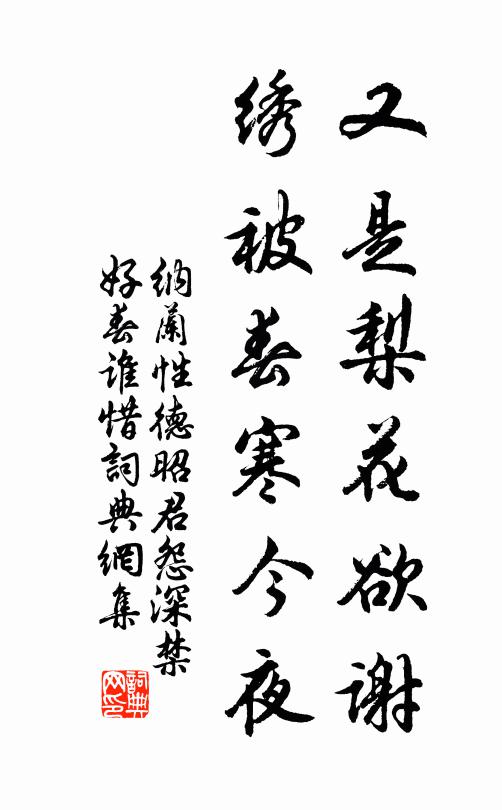 又是梨花欲谢
绣被春寒今夜
纳兰性德昭君怨深禁
好春谁惜詞典網集
詞典网印